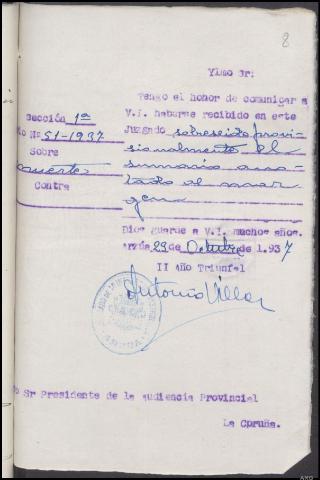 8
Ylmo Sr:
Tengo el honor de comunicar a
V.I. haberse recibido en este
Juzgado sobreseido provi-
sionalmente el
sumario ano-
tado al mar
gen.
Sección 1ª
Nº 51-1937
Sobre
muerte
Contra
Dios guarde a V.I. muchos años.
Arzúa 29 de Octubre de 1.937
II Año Triunfal
Antonio Villar
Sr Presidente de la Audiencia Provincial
La Coruña.